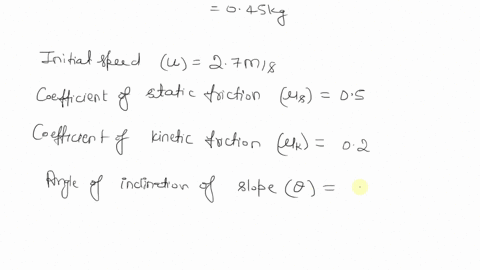 = 0.45kg
Initial speed (u) = 2.7m/s
Coefficient of static friction (μs) = 0.5
Coefficient of kinetic friction (μk) = 0.2
Angle of inclination of slope (θ) =